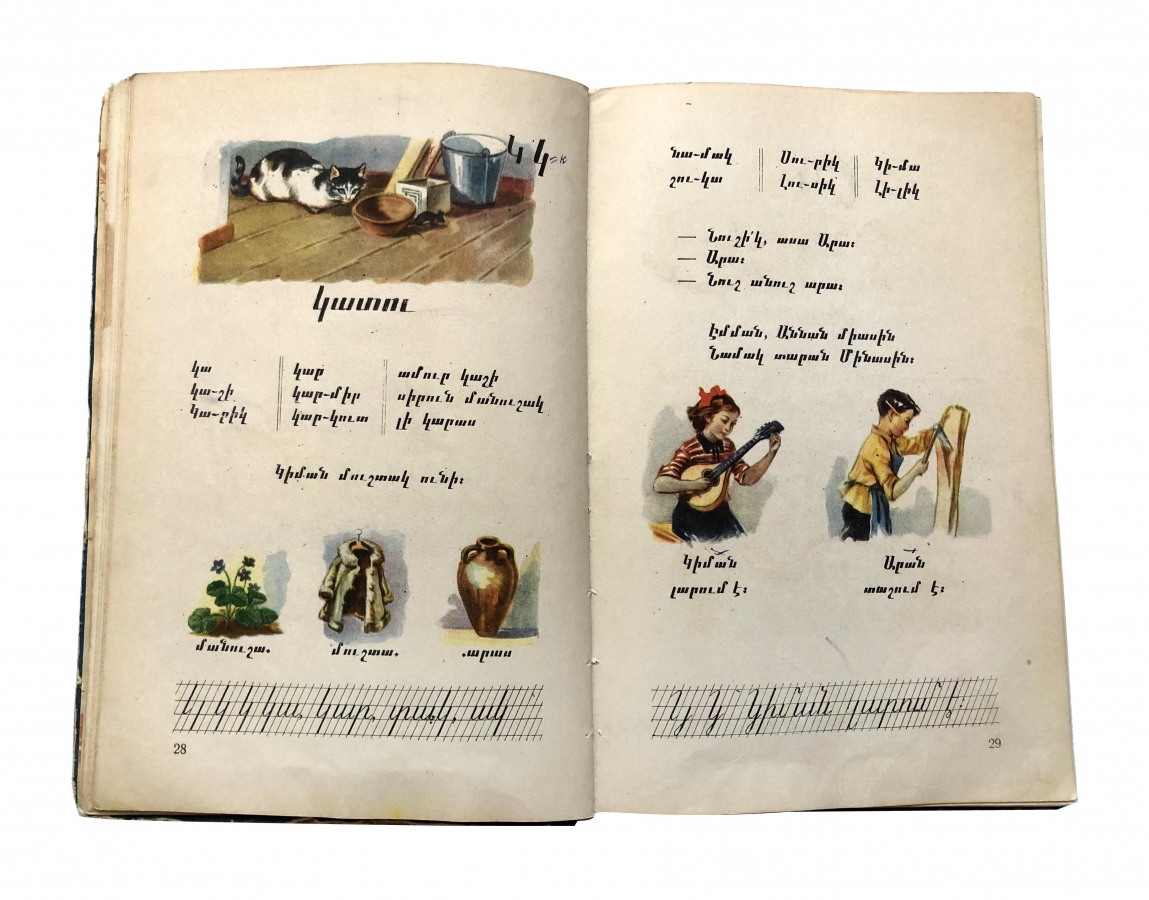 Կ կ = к
կատու
կա կար ամուր կաշի
կա-շի կար-միր սիրուն մանուշակ
Կա-րիկ կար-կուտ լի կարաս
Կիման մուշտակ ունի։
մանուշա. մուշտա. .արաս
Կ կ կ կ կա, կար, տակ, ակ
28
նա-մակ Սու-րիկ Կի-մա
շու-կա Լու-սիկ Լի-լիկ
— Նուշի՛կ, ասա Արա։
— Արա։
— Նուշ անուշ արա։
Էմման, Աննան միասին
Նամակ տարան Մինասին։
Կիման Արան
լարում է։ տաշում է։
Կ Կ Կիման լարում է։
29